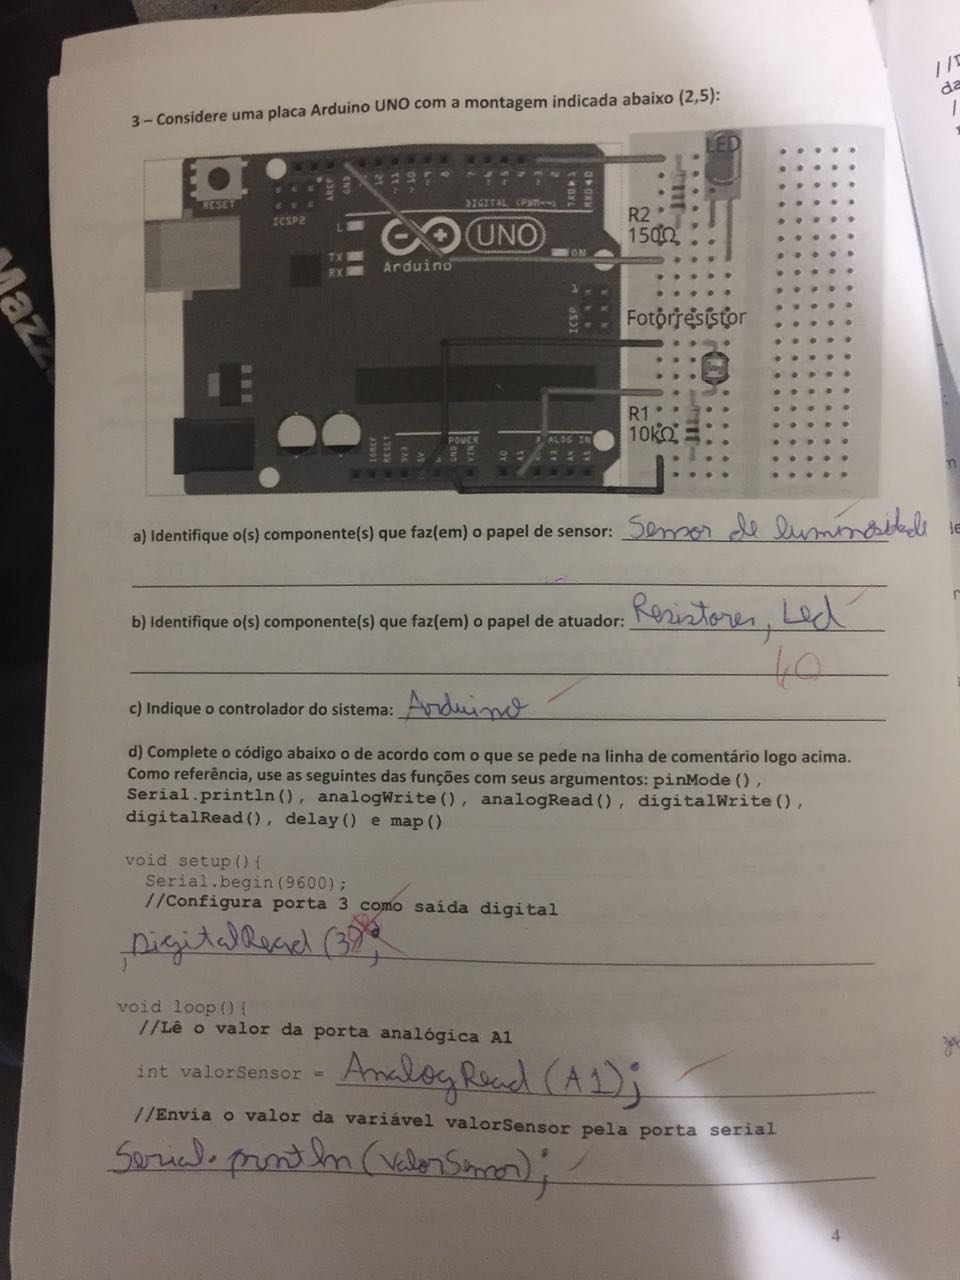 3 – Considere uma placa Arduino UNO com a montagem indicada abaixo (2,5):
RESET
ICSP2
AREF
GND
12
~11
~10
~9
8
7
~6
~5
4
~3
2
TXD▶1
RXD◀0
DIGITAL (PWM=~)
L
TX
RX
UNO
Arduino
ON
ICSP
1
LED
R2
150Ω
Fotorresistor
R1
10kΩ
IOREF
RESET
3V3
5V
GND
VIN
POWER
ANALOG IN
A0
A1
A3
A4
A5
a) Identifique o(s) componente(s) que faz(em) o papel de sensor: Sensor de luminosidade
b) Identifique o(s) componente(s) que faz(em) o papel de atuador: Resistores, Led
c) Indique o controlador do sistema: Arduino
d) Complete o código abaixo o de acordo com o que se pede na linha de comentário logo acima.
Como referência, use as seguintes das funções com seus argumentos: pinMode(),
Serial.println(), analogWrite(), analogRead(), digitalWrite(),
digitalRead(), delay() e map()
void setup(){
Serial.begin(9600);
//Configura porta 3 como saída digital
DigitalRead (3);
}
void loop(){
//Lê o valor da porta analógica A1
int valorSensor = AnalogRead (A1);
//Envia o valor da variável valorSensor pela porta serial
Serial.println (valorSensor);
4
Maz